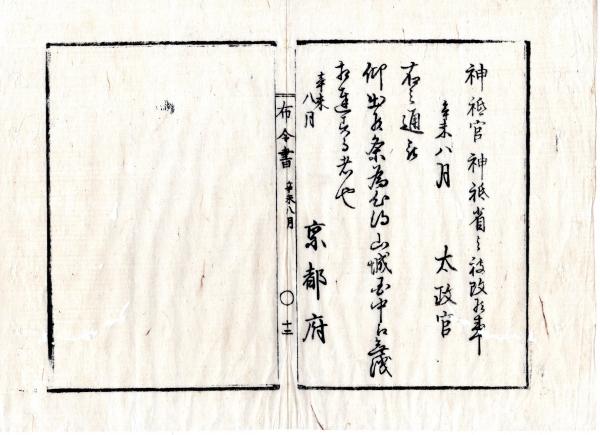 神祇官神祇省ニ被改候事
辛未八月 太政官
右之通被
仰出候条為心得山城国中江無洩
相達する者也
辛未八月 京都府
布令書 辛未八月 〇 十二